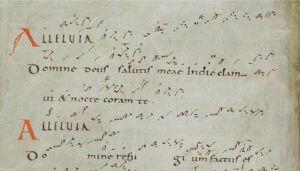 ALLELUIA
Domine deus salutis meae Indie clam
ui & nocte coram te
ALLELUIA
Do mine refu gi um factus es